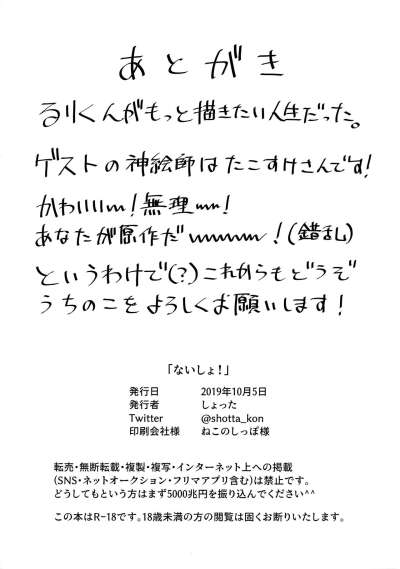 あとがき
るりくんがもっと描きたい人生だった。
ゲストの神絵師はたこすけさんです!
かわいいいm!無理mm!
あなたが原作だmmmm!(錯乱)
というわけで(?)これからもどうぞ
うちのこをよろしくお願いします!
「ないしょ!」
発行日 2019年10月5日
発行者 しょった
Twitter @shotta_kon
印刷会社様 ねこのしっぽ様
転売・無断転載・複製・複写・インターネット上への掲載
(SNS・ネットオークション・フリマアプリ含む)は禁止です。
どうしてもという方はまず5000兆円を振り込んでください^^
この本はR-18です。18歳未満の方の閲覧は固くお断りいたします。